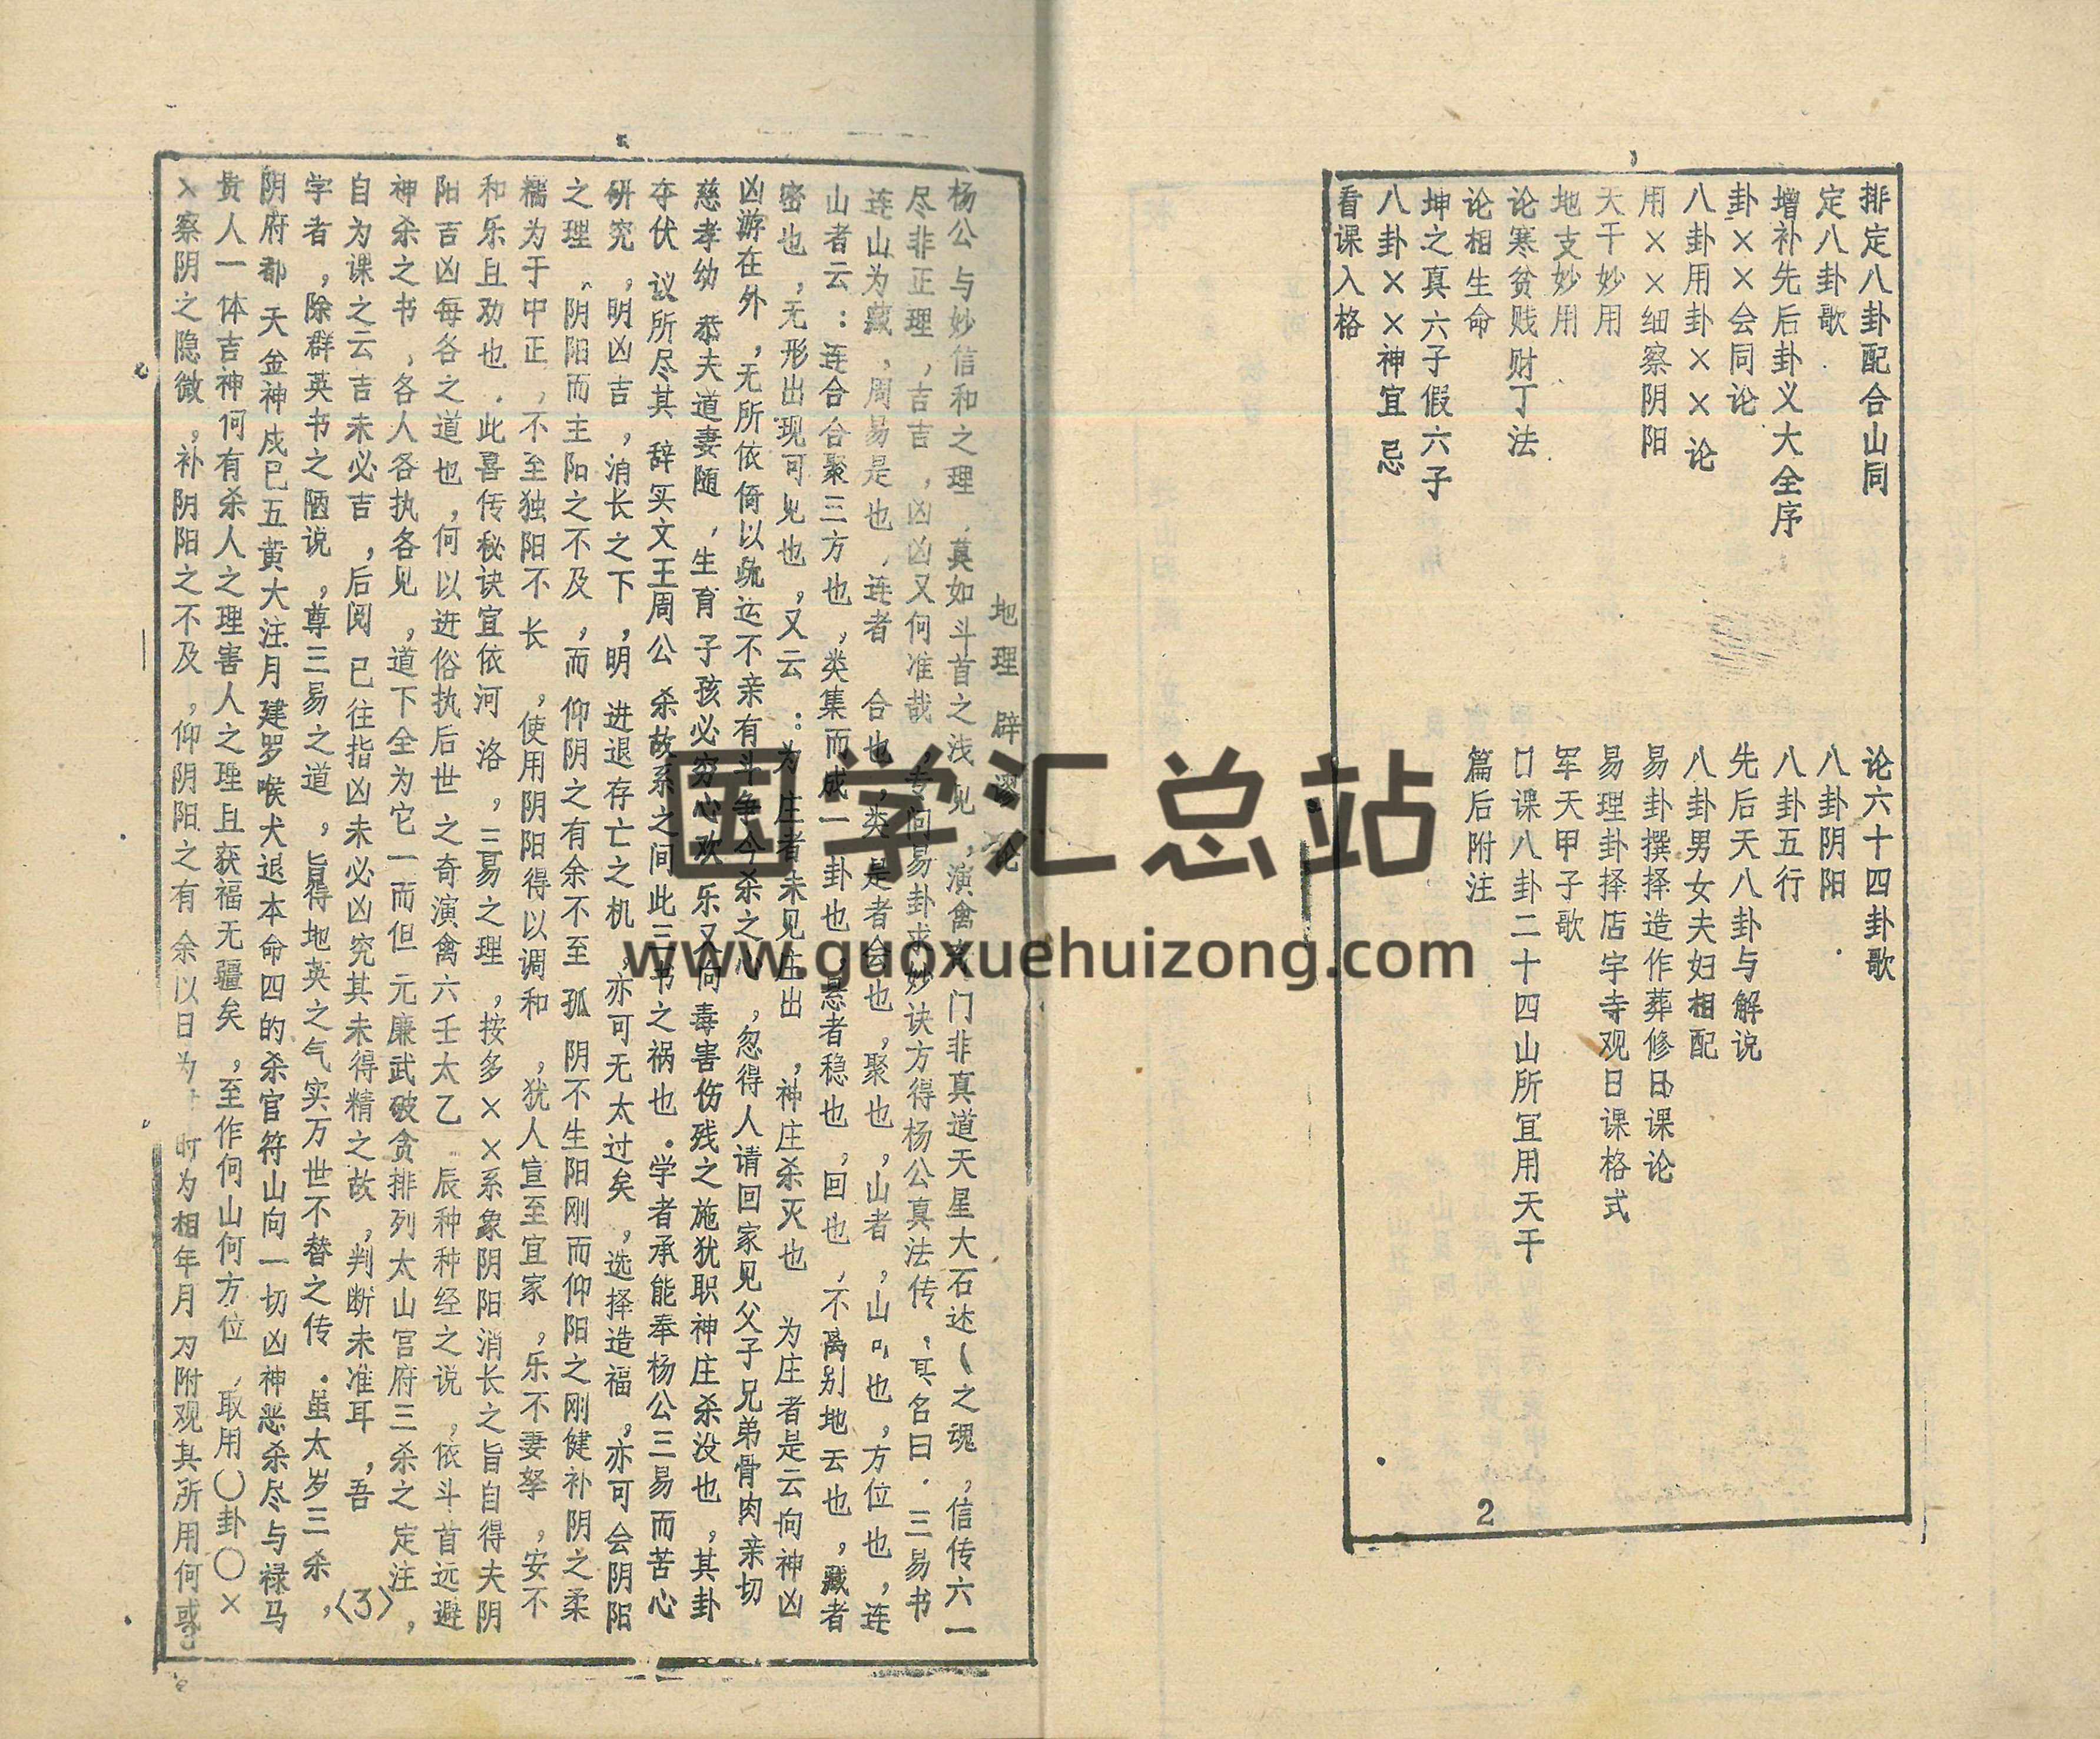 排定八卦配合山同
定八卦歌
增补先后卦义大全序
卦××会同论
八卦用卦××论
用××细察阴阳
天干妙用
地支妙用
论寒贫贱财丁法
论相生命
坤之真六子假六子
八卦××神宜忌
看课入格
论六十四卦歌
八卦阴阳
八卦五行
先后天八卦与解说
八卦男女夫妇相配
易卦撰择造作葬修日课论
易理卦择店宇寺观日课格式
军天甲子歌
口课八卦二十四山所宜用天干
篇后附注
2
地理辟谬论
杨公与妙信和之理，莫如斗首之浅见，演禽 门非真道天星大石达（之魂，信传六一
尽非正理，吉吉，凶凶又何准哉，专问易卦求妙诀方得杨公真法传，其名曰．三易书
连山为藏，周易是也，连者 合也，类是者会也，聚也，山者，山 也，方位也，连
山者云：连合合聚三方也，类集而成一卦也，息者稳也，回也，不离别地云也，藏者
密也，无形出现可见也，又云：为庄者未见庄出，神庄杀灭也 为庄者是云向神凶
凶游在外，无所依倚以 迄不亲有斗争今杀之心，忽得人请回家见父子兄弟骨肉亲切
慈孝幼 恭夫道妻随，生育子孩必穷心欢乐又何毒害伤残之施犹职神庄杀没也，其卦
夺伏 议所尽其 辞实文王周公 杀故系之间此三书之祸也．学者承能奉杨公三易而苦心
研究，明凶吉，消长之下，明进退存亡之机，亦可无太过矣，选择造福，亦可会阴阳
之理，阴阳而主阳之不及，而仰阴之有余不至孤 阴不生阳刚而仰阳之刚健补阴之柔
糯为于中正，不至独阳不长，使用阴阳得以调和，犹人宣至宜家，乐不妻孥，安不
和乐且劝也．此喜传秘诀宜依河洛，三易之理，按多××系象阴阳消长之旨自得夫阴
阳吉凶每各之道也，何以进俗执后世之奇演禽六壬太乙 辰种种经之说，依斗首远避
神杀之书，各人各执各见，道下全为它一而但 元廉武破贪排列太山宫府三杀之定注，
自为课之云吉未必吉，后阅已往指凶未必凶究其未得精之故，判断未准耳，吾
学者，除群英书之陋说，尊三易之道，旨得地英之气实万世不替之传．虽太岁三杀，
阴府都天金神戌巳五黄大注月建罗喉犬退本命四的杀官符山向一切凶神恶杀尽与禄马
贵人一体吉神何有杀人之理害人之理且获福无疆矣，至作何山何方位，取用○卦○×
×察阴之隐微，补阴阳之不及，仰阴阳之有余以日为 时为相年月 附观其所用何惑
〈3〉
国学汇总站
www.guoxuehuizong.com